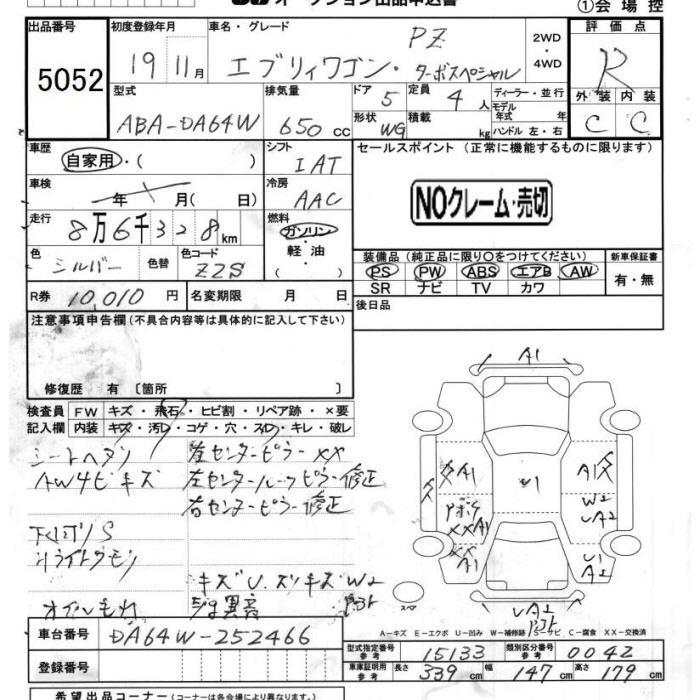 オークション出品申込書
①会場控
出品番号 初度登録年月 車名・グレード 評価点
5052 19 11月 エブリィワゴン・ PZ ターボスペシャル 2WD・4WD R
型式 排気量 ドア 5 定員 4人 ディーラー・並行 外装 内装
ABA-DA64W 650 cc 形状 WG 積載 kg モデル年式 年式 ハンドル 左・右 C C
車歴 シフト セールスポイント (正常に機能するものに限ります)
自家用・( ) IAT
車検 冷房 NOクレーム・売切
年 月( 日) AAC
走行 燃料
8万6千328km ガソリン・
色 色替 色コード 軽油・ 装備品(純正品に限り○をつけてください) 新車保証書
シルバー ZZS ( ) PS PW ABS エアB AW 有・無
R券 10,010円 名変期限 月 日 SR ナビ TV カワ
注意事項申告欄(不具合内容等は具体的に記入して下さい) 後日品
修復歴 有 〔箇所 〕
検査員 FW キズ・飛石・ヒビ割・リペア跡・×要
記入欄 内装 キズ・汚レ・コゲ・穴・スレ・キレ・破レ
シートヘタリ 左センターピラーXX
AW4ビキズ 左センタールーフピラー修正
右センターピラー修正
下回りS
ライトクモリ
キズU、スリキズW2
オイルもれ 異音
A1
A1 A1
U1 W2
XXA1 UA2
XX U1
A1 A2
UA2
スペア
A-キズ E-エクボ U-凹み W-補修跡 S-サビ C-腐食 XX-交換済
車台番号 DA64W-252466 型式指定番号 参考 15133 類別区分番号 参考 0042
登録番号 車庫証明用 参考 長さ 339cm 幅 147cm 高さ 179cm
希望出品コーナー(コーナーは各会場により異なります)